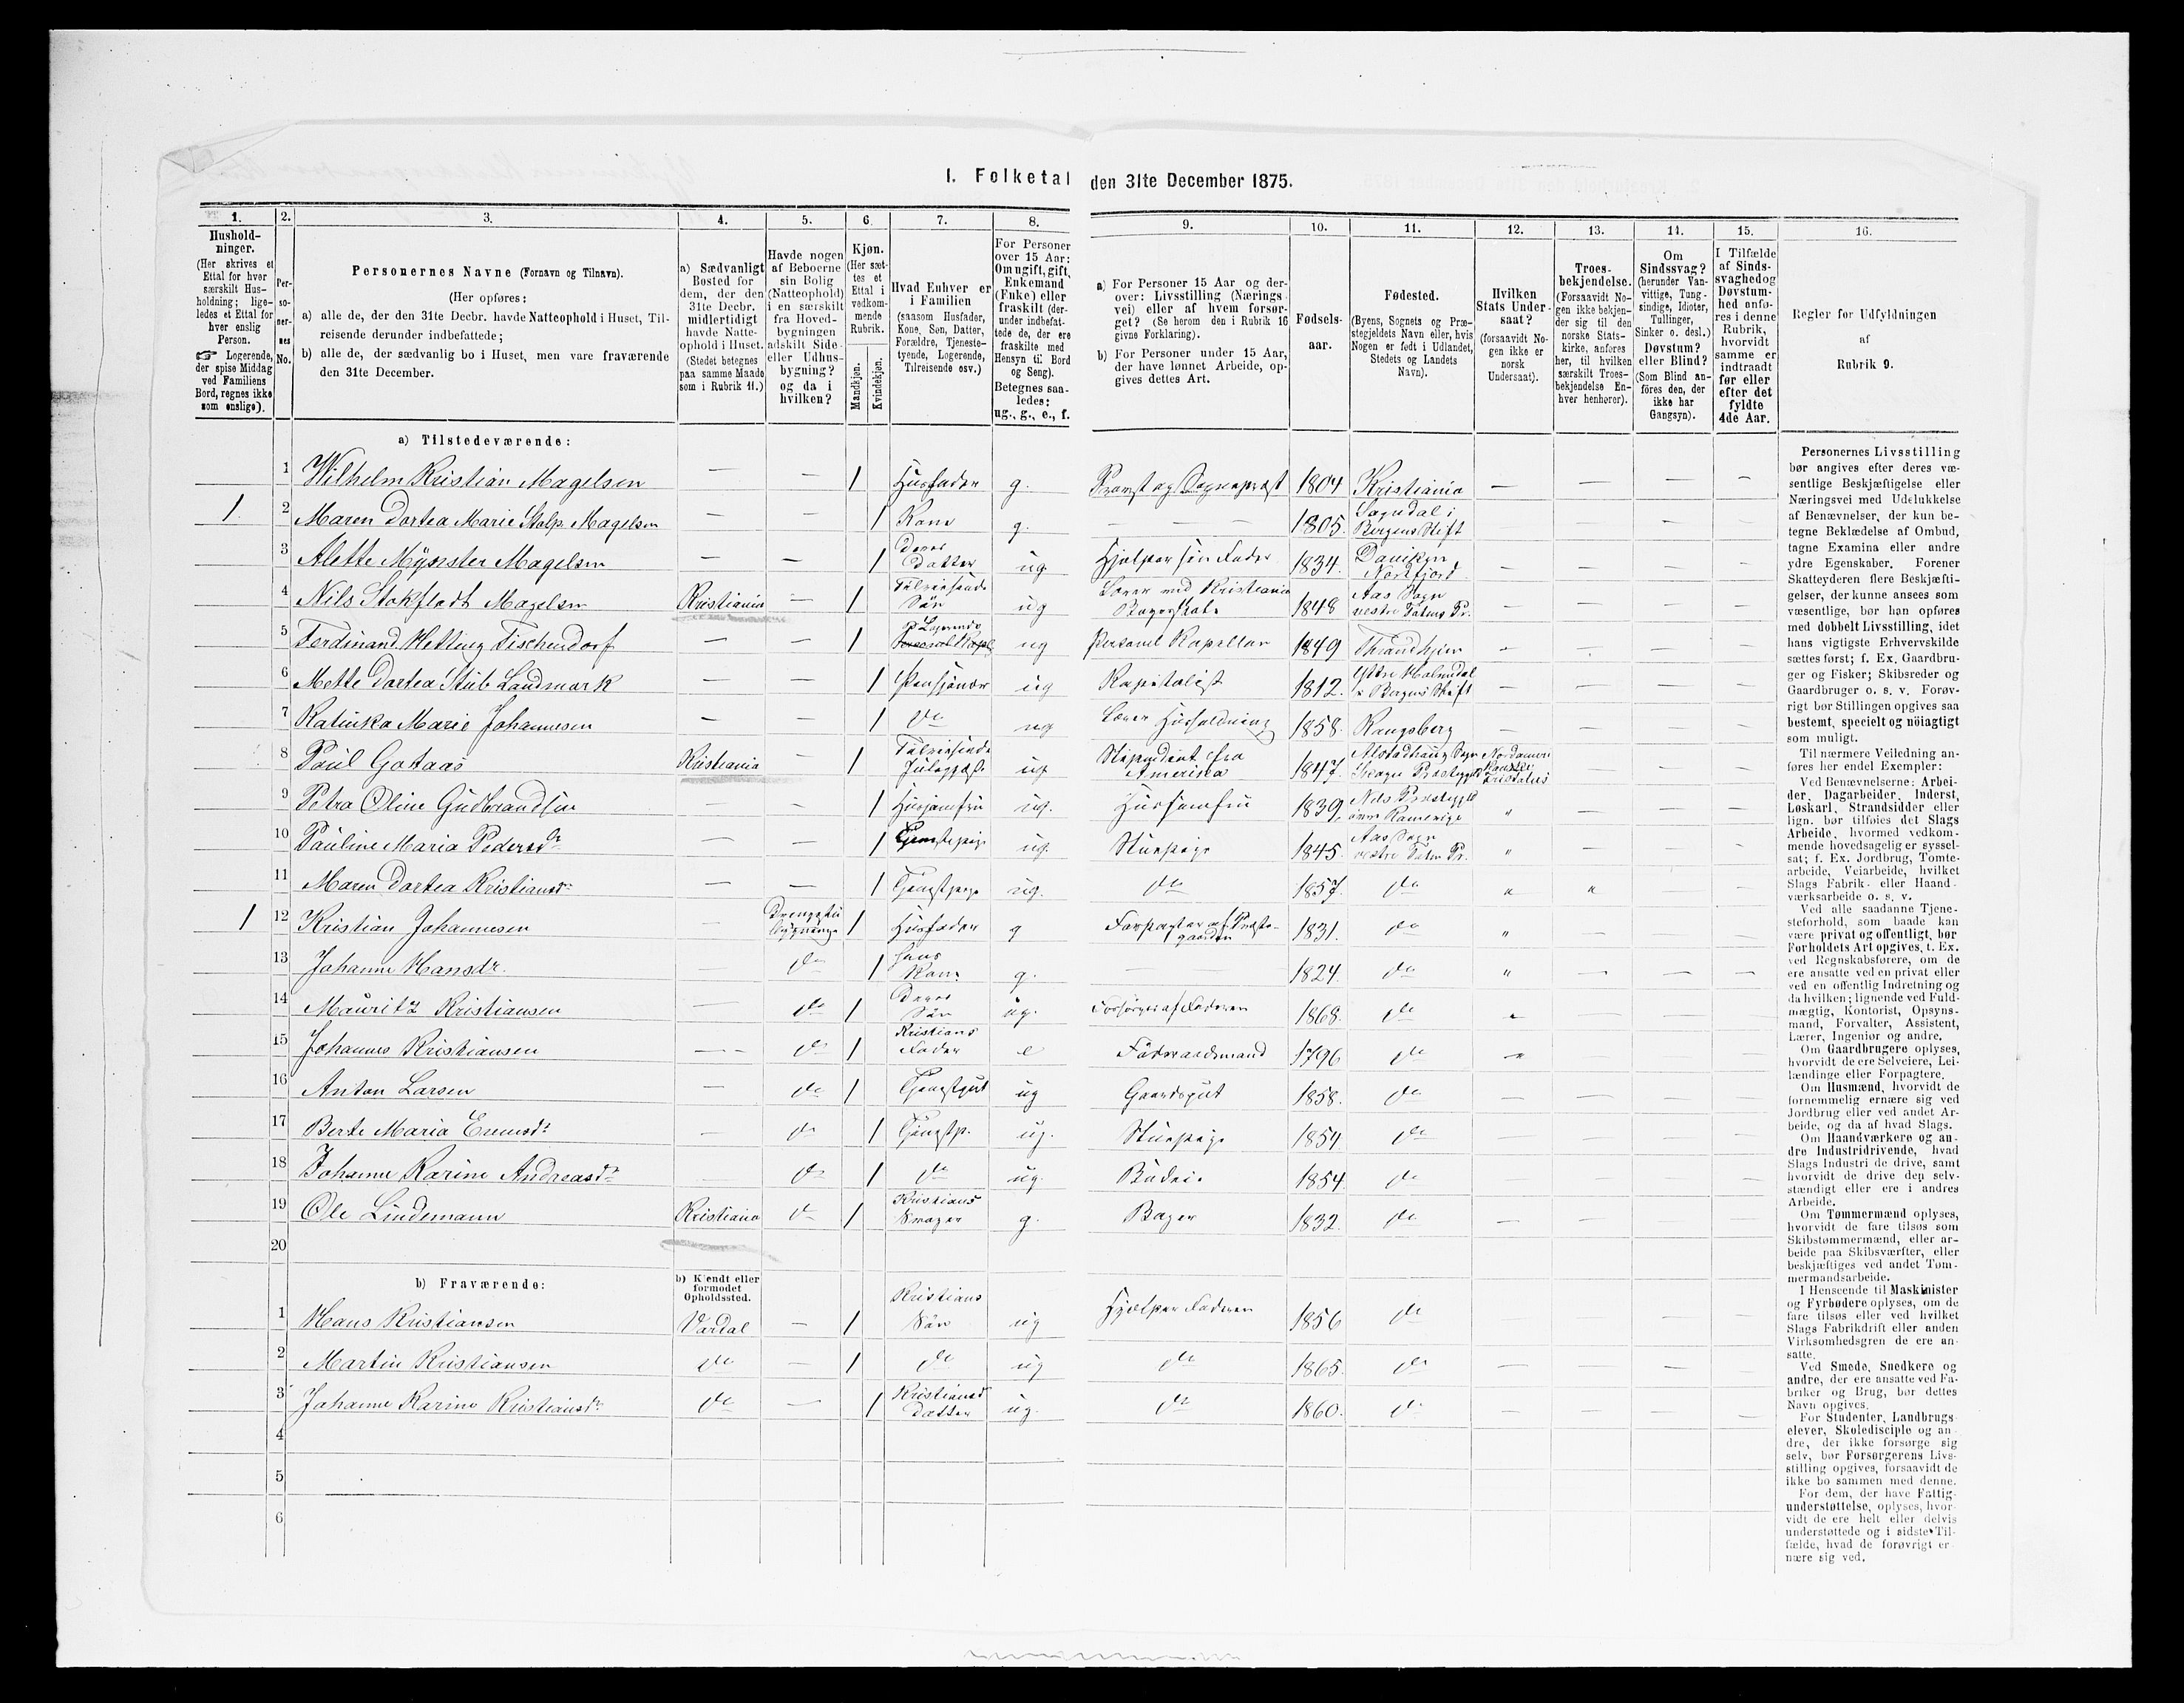 I. Folketal den 31te December 1875.
1. 2. 3. 4. 5. 6. 7. 8. 9. 10. 11. 12. 13. 14. 15. 16.
Hushold-
ninger.
(Her skrives et
Ettal for hver
særskilt Hus-
holdning; lige-
ledes et Ettal for
hver enslig
Person.
☞ Logerende,
der spise Middag
ved Familiens
Bord, regnes ikke
som enslige).
Per-
so-
ner-
nes
No.
Personernes Navne (Fornavn og Tilnavn).
(Her opføres:
a) alle de, der den 31te Decbr. havde Natteophold i Huset, Til-
reisende derunder indbefattede;
b) alle de, der sædvanlig bo i Huset, men vare fraværende
den 31te December.
a) Sædvanligt
Bosted for
dem, der den
31te Decbr.
midlertidigt
havde Natte-
ophold i Huset.
(Stedet betegnes
paa samme Maade
som i Rubrik 11.)
Havde nogen
af Beboerne
sin Bolig
(Natteophold)
i en særskilt
fra Hoved-
bygningen
adskilt Side-
eller Udhus-
bygning?
og da i
hvilken?
Kjøn.
(Her sæt-
tes et
Ettal i
vedkom-
mende
Rubrik.
Mandkjøn.
Kvindekjøn.
Hvad Enhver er
i Familien
(saasom Husfader,
Kone, Søn, Datter,
Forældre, Tjeneste-
tyende, Logerende,
Tilreisende osv.)
For Personer
over 15 Aar:
Om ugift, gift,
Enkemand
(Enke) eller
fraskilt (der-
under indbefat-
tede de, der ere
fraskilte med
Hensyn til Bord
og Seng).
Betegnes saa-
ledes:
ug., g., e., f.
a) For Personer 15 Aar og der-
over: Livsstilling (Nærings-
vei) eller af hvem forsør-
get? (Se herom den i Rubrik 16
givne Forklaring).
b) For Personer under 15 Aar,
der have lønnet Arbeide, op-
gives dettes Art.
Fødsels-
aar.
Fødested.
(Byens, Sognets og Præ-
stegjeldets Navn eller, hvis
Nogen er født i Udlandet,
Stedets og Landets
Navn).
Hvilken
Stats Under-
saat?
(forsaavidt No-
gen ikke er
norsk
Undersaat).
Troes-
bekjendelse.
(Forsaavidt No-
gen ikke bekjen-
der sig til den
norske Stats-
kirke, anføres
her, til hvilken
særskilt Troes-
bekjendelse En-
hver henhører).
Om
Sindssvag?
(herunder Van-
vittige, Tung-
sindige, Idioter,
Tullinger,
Sinker o. desl.)
Døvstum?
eller Blind?
(Som Blind an-
føres den, der
ikke har
Gangsyn).
I Tilfælde
af Sinds-
svaghed og
Døvstum-
hed anfø-
res i denne
Rubrik,
hvorvidt
samme er
indtraadt
før eller
efter det
fyldte
4de Aar.
Regler for Udfyldningen
af
Rubrik 9.
a) Tilstedeværende:
1 Wilhelm Kristian Magelsen — — 1 Husfader g. Provst og Sognepræst 1804 Kristiania — — — —
1 2 Maren Dortea Marie Stolp. Magelsen — — 1 Kone g. — 1805. Sogndal i Bergens Stift — — — —
3 Alette Mynster Magelsen — — 1 Deres Datter ug Hjelper sin Fader 1834. Daviken Nordfjord — — — —
4 Nils Stokfledt Magelsen Kristiania — 1 Tilreisende Søn ug Lærer ved Kristiania Borgerskole 1848 Aas Sogn vestre Totens Pr. — — — —
5 Ferdinand Hetling Tischendorf — — 1 Logerende ug Personel Kapellan 1849 Throndhjem — — — —
6 Mette Dortea Stub Landmark — — 1 Pensjonær ug Kapitalist 1812. Ytre Holmedal Bergens Stift — — — —
7 Katinka Marie Johannesen — — 1 do ug Lærer Husholdning 1858. Kongsberg — — — —
8 Paul Gotaas Kristiania — 1 Tilreisende Julegjæst ug Stipendiat fra Amerika 1847. Alstadhaug Sogn Skogn Præstegjeld Nordameri — — —
9 Petra Oline Gudbrandsen — — 1 Husjomfru ug. Husjomfru 1839. Nes Præstegjeld øvre Romerige " — — —
10 Pauline Maria Pedersdr — — 1 Tjenestepige ug. Stuepige 1845. Aas Sogn vestre Toten Pr. " — — —
11 Maren Dortea Kristiansdr — — 1 Tjenstpige ug. do 1857. do " " — —
1 12 Kristian Johannesen — Drengestubygning 1 Husfader g Forpagter af Præstegaarden 1831. do " — — —
13 Johanne Hansdr. — do 1 hans Kone g. — 1824. do " — — —
14 Mauritz Kristiansen — do 1 Deres Søn ug. Forsørges af Faderen 1868. do " — — —
15 Johannes Kristiansen — do 1 Kristians Fader e Føderaadsmand 1796 do " — — —
16 Anton Larsen — do 1 Tjenstgut ug Gaardsgut 1858. do — — — —
17 Berte Maria Evensdr — do 1 Tjenstp. ug. Stuepige 1854. do — — — —
18 Johanne Karine Andreasdr — do 1 do ug. Budeie 1854. do — — — —
19 Ole Lindemann Kristiania do 1 Kristians Svoger g. Bager 1832. do — — — —
20
b) Fraværende:
b) Kjendt eller
formodet
Opholdssted.
1 Hans Kristiansen Vardal — 1 Kristians Søn ug Hjelper Faderen 1856 do — — — —
2 Martin Kristiansen do — 1 do ug do 1865. do — — — —
3 Johanne Karine Kristiansdr do — 1 Kristians Datter ug. do 1860. do — — — —
4
5
6
Personernes Livsstilling
bør angives efter deres væ-
sentlige Beskjæftigelse eller
Næringsvei med Udelukkelse
af Benævnelser, der kun be-
tegne Beklædelse af Ombud,
tagne Examina eller andre
ydre Egenskaber. Forener
Skatteyderen flere Beskjæfti-
gelser, der kunne ansees som
væsentlige, bør han opføres
med dobbelt Livsstilling, idet
hans vigtigste Erhvervskilde
sættes først; f. Ex. Gaardbru-
ger og Fisker; Skibsreder og
Gaardbruger o. s. v. Forøv-
rigt bør Stillingen opgives saa
bestemt, specielt og nøiagtigt
som muligt.
Til nærmere Veiledning an-
føres her endel Exempler:
Ved Benævnelserne: Arbei-
der, Dagarbeider, Inderst,
Løskarl, Strandsidder eller
lign. bør tilføies det Slags
Arbeide, hvormed vedkom-
mende hovedsagelig er syssel-
sat; f. Ex. Jordbrug, Tomte-
arbeide, Veiarbeide, hvilket
Slags Fabrik- eller Haand-
værksarbeide o. s. v.
Ved alle saadanne Tjene-
steforhold, som baade kan
være privat og offentligt, bør
Forholdets Art opgives, t. Ex.
ved Regnskabsførere, om de
ere ansatte ved en privat eller
ved en offentlig Indretning og
da hvilken; lignende ved Fuld-
mægtig, Kontorist, Opsyns-
mand, Forvalter, Assistent,
Lærer, Ingeniør og andre.
Om Gaardbrugere oplyses,
hvorvidt de ere Selveiere, Lei-
lændinge eller Forpagtere.
Om Husmænd, hvorvidt de
fornemmelig ernære sig ved
Jordbrug eller ved andet Ar-
beide, og da af hvad Slags.
Om Haandværkere og an-
dre Industridrivende, hvad
Slags Industri de drive, samt
hvorvidt de drive den selv-
stændigt eller ere i andres
Arbeide.
Om Tømmermænd oplyses,
hvorvidt de fare tilsøs som
Skibstømmermænd, eller ar-
beide paa Skibsværfter, eller
beskjæftiges ved andet Tøm-
mermandsarbeide.
I Henseende til Maskinister
og Fyrbødere oplyses, om de
fare tilsøs eller ved hvilket
Slags Fabrikdrift eller anden
Virksomhedsgren de ere an-
satte.
Ved Smede, Snedkere og
andre, der ere ansatte ved Fa-
briker og Brug, bør dettes
Navn opgives.
For Studenter, Landbrugs-
elever, Skoledisciple og an-
dre, der ikke forsørge sig
selv, bør Forsørgerens Livs-
stilling opgives, forsaavidt de
ikke bo sammen med denne.
For dem, der have Fattig-
understøttelse, oplyses, hvor-
vidt de ere helt eller delvis
understøttede og i sidste Til-
fælde, hvad de forøvrigt er-
nære sig ved.